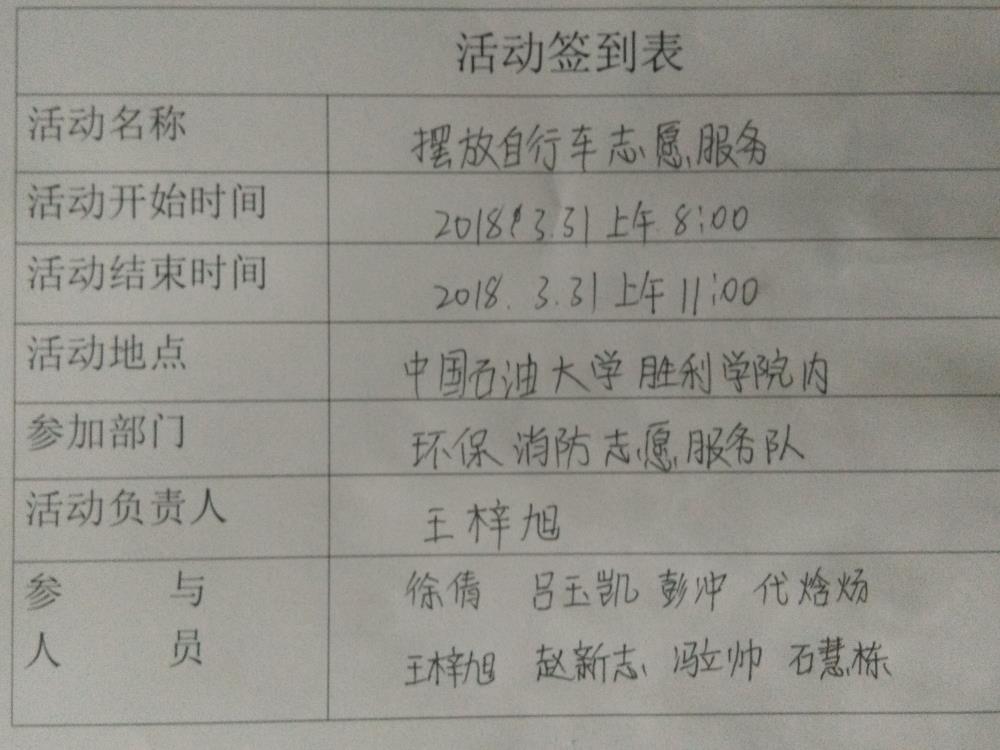 活动签到表
活动名称 摆放自行车志愿服务
活动开始时间 2018.3.31 上午 8:00
活动结束时间 2018.3.31 上午 11:00
活动地点 中国石油大学胜利学院内
参加部门 环保消防志愿服务队
活动负责人 王梓旭
参与 徐倩 吕玉凯 彭冲 代焓炀
人员 王梓旭 赵新志 冯立帅 石慧栋